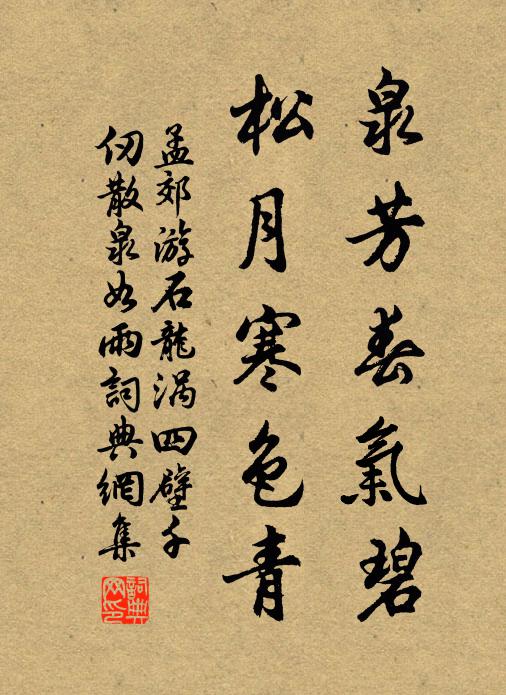 泉芳春氣碧
松月寒色青
孟郊游石龍涡四壁千
仞散泉如雨詞典網集
詞典網印